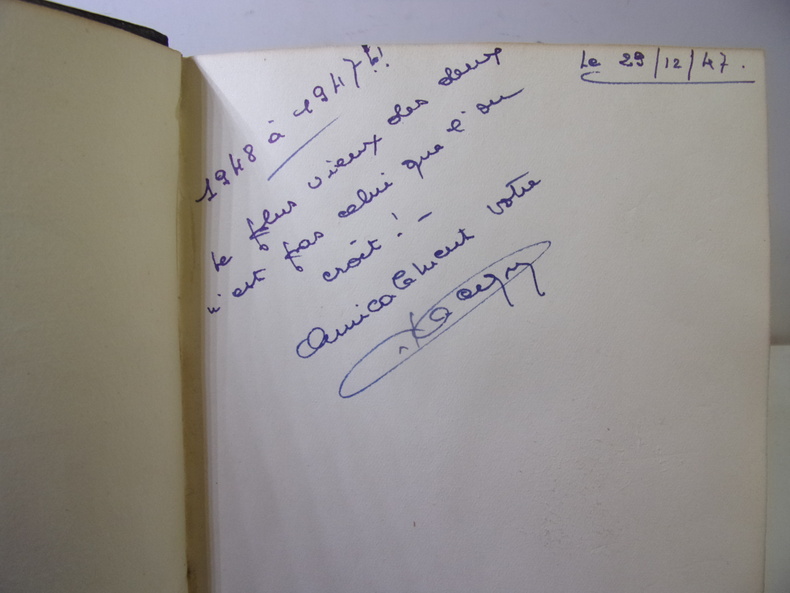 Le 29/12/47.
1948 à 1947!!
Le plus vieux des deux
n'est pas celui que l'on
croit! –
Amicalement votre